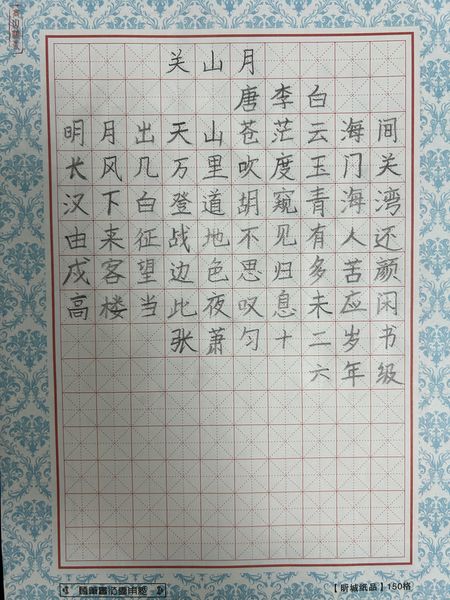 关山月
唐李白
明月出天山苍茫云海间
长风几万里吹度玉门关
汉下白登道胡窥青海湾
由来征战地不见有人还
戍客望边色思归多苦颜
高楼当此夜叹息未应闲
张萧匀十二岁书
六年级
【昕城纸品】150格